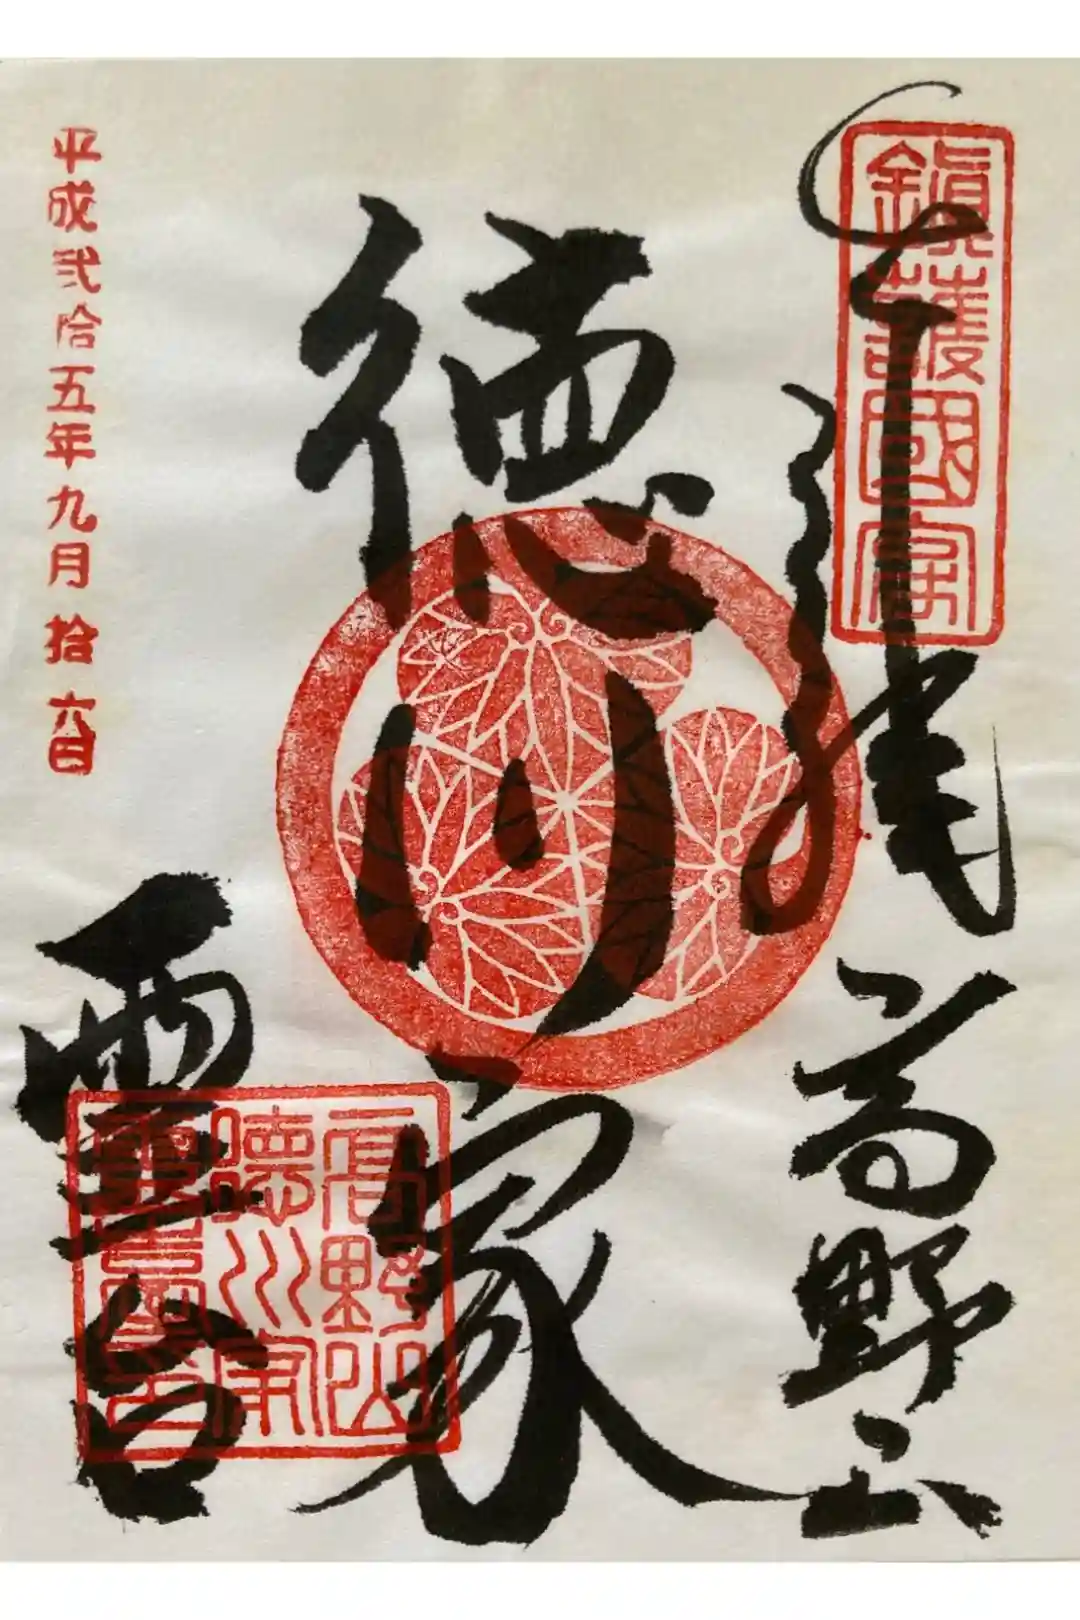 鎮護國家
奉拝 高野山
徳川家
霊台
高野山
德川家
平成弐拾五年九月拾六日